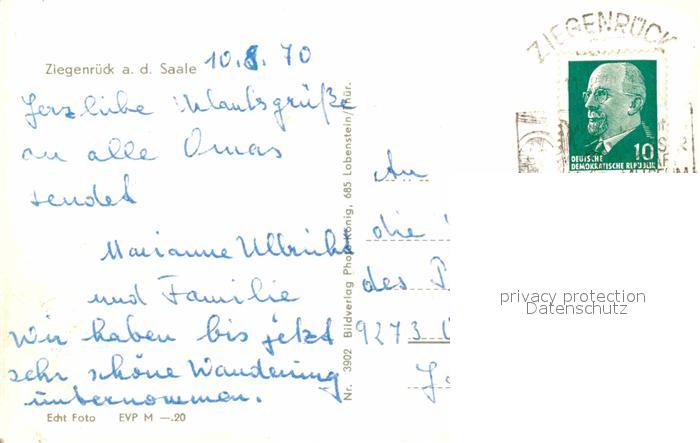 Ziegenrück a. d. Saale
10.8.70
Herzliche Urlaubsgrüße
an alle Omas
sendet
Marianne Ullrich
und Familie
Wir haben bis jetzt
sehr schöne Wanderung
unternommen.
Echt Foto EVP M —.20
Nr. 3902 Bildverlag Photo-König, 685 Lobenstein/Thür.
ZIEGENRÜCK
DEUTSCHE
DEMOKRATISCHE REPUBLIK
10
An
die
des
9273
privacy protection
Datenschutz